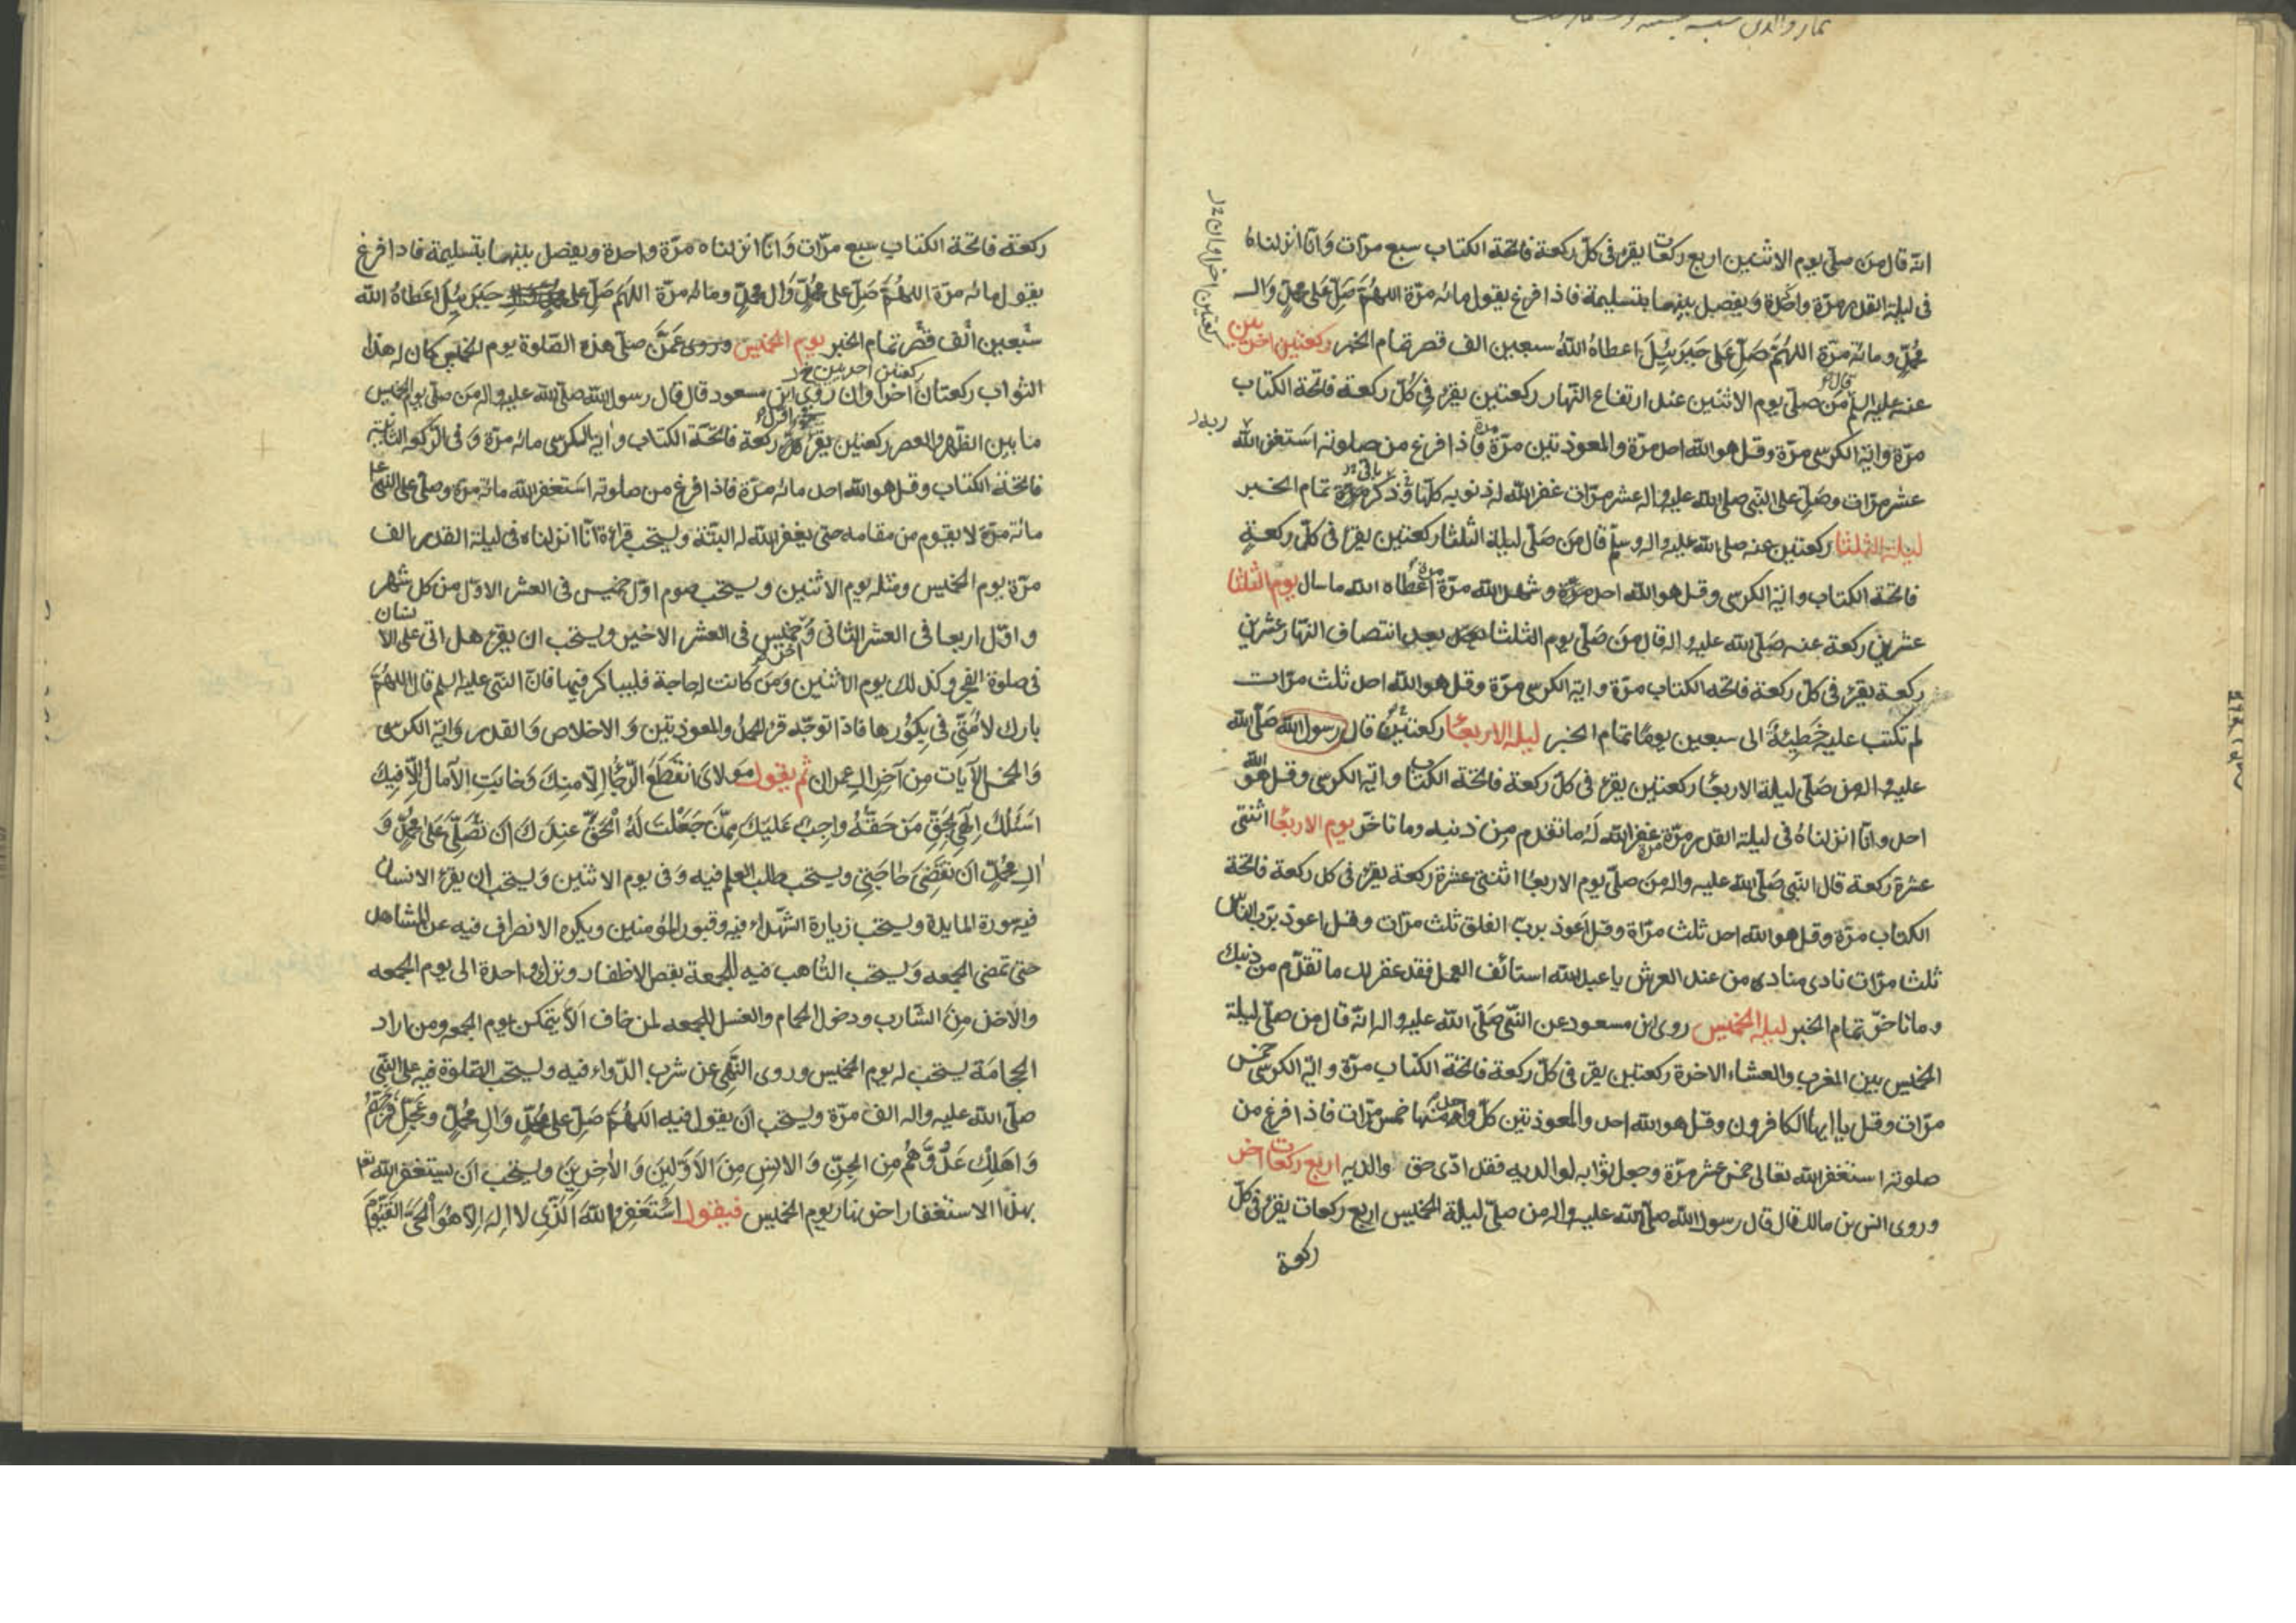 انّه قال من صلّى يوم الاثنين اربع ركعات يقرء فى كلّ ركعة فاتحة الكتاب سبع مرّات وَانّا انزلناهُ
فى ليلة القدر مرّة واحدة وَيفصل بينهما بتسليمة فاذا فرغ يقول مائه مرّة اللهُمَّ صَلِّ عَلى محمّدٍ وَال
محمّدٍ ومائة مرّة اللهُمَّ صَلِّ عَلى جَبرَئيلَ اعطاهُ اللهُ سبعين الف قصر تمام الخبر وركعتين اخريين
عنه عليه السلم قال من صلّى يوم الاثنين عند ارتفاع النّهار ركعتين يقرء فى كُلّ ركعة فاتحة الكتاب
مرّة واية الكرسى مرّة وقل هو الله احد مرّة والمعوذتين مرّة مرة فاذا فرغ من صلوته استغفر الله
عشر مرّات وصَلّى على النّبى صلى الله عليه واله عشر مرّات غفر الله له ذنوبه كلّها وَذكر تمام الخبر
ليلة الثلثا ركعتين عنه صلى الله عليه واله وسلّم قال من صَلّى ليلة الثلثا ركعتين يقرء فى كلّ ركعةٍ
فاتحة الكتاب واية الكرسى وقل هو الله احد وشهد الله مرّة مرة اعطاه الله ما سال يوم الثلثا
عشرين ركعة عنه صَلّى الله عليه واله قال من صَلّى يوم الثلثا بعد انتصاف النّهار عشرين
ركعة يقرء فى كلّ ركعة فاتحه الكتاب مرّة واية الكرسى مرّة وقل هو الله احد ثلث مرّات
لم تكتب عليه خَطِيئةٌ الى سبعين يومًا تمام الخبر ليله الاربعًا ركعتين قال رسول الله صَلّى الله
عليه واله من صَلّى ليلة الاربعًا ركعتين يقرء فى كلّ ركعة فاتحة الكتاب واية الكرسى وقل هو الله
احد وانّا انزلناهُ فى ليلة القدر مرّة مرة غفر الله لَهُ ما تقدم مِن ذنبه وما تاخّر يوم الاربعًا اثنتى
عشرة ركعة قال النّبى صَلّى الله عليه واله من صَلّى يوم الاربعًا اثنتى عشرة ركعة يقرء فى كل ركعة فاتحة
الكتاب مرّة وقل هو الله احد ثلث مرّاة وقل اَعوذ بربّ الفلق ثلث مرّات وقل اعوذ بربّ النّاس
ثلث مرّات نادى مناد من عند العرش يا عبد الله استأنف العمل فقد غفر لك ما تقدّم من ذنبك
وما تاخّر تمام الخبر ليله الخميس روى ابن مسعود عن النّبى صَلّى الله عليه واله انّه قال من صلّى ليلة
الخميس بين المغرب والعشاء الاخرة ركعتين يقرء فى كلّ ركعة فاتحة الكتاب مرّة واية الكرسى خمس
مرّات وقل يا ايها الكافرون وقل هو الله احد والمعوذتين كلّ واحد منها خمس مرّات فاذا فرغ من
صلوته استغفر الله تعالى خمس عشر مرّة وجعل ثوابه لوالديه فقد ادّى حق والديه اربع ركعات اخر
وروى انس بن مالك قال قال رسول الله صَلّى الله عليه واله من صَلّى ليلة الخميس اربع ركعات يقرء فى كلّ
ركعة
ركعتين اخراوان
ركعة فاتحة الكتاب سبع مرّات وَانّا انزلناه مرّة واحدة ويفصل بينهما بتسليمة فاذا فرغ
يقول مائه مرّة اللهُمَّ صَلِّ على محمّدٍ وَال محمّدٍ ومائه مرّة اللهمّ صَلِّ على جَبرَئيلَ اعطاهُ الله
سَبعين الف قصر تمام الخبر يوم الخميس وروى عمّن صَلّى هذه الصّلوة يوم الخميس كان له هذا
ركعتين اخريين
الثواب ركعتان اخراوان روى ابن مسعود قال قال رسول الله صلّى الله عليه واله من صَلّى يوم الخميس
ما بين الظهر والعصر ركعتين يقرء ركعة فاتحة الكتاب واية الكرسى مائه مرّة وَفى الرّكعة الثانية
فاتحة الكتاب وقل هو الله احد مائه مرّة فاذا فرغ من صلوته اَستغفر الله مائة مرّة وصَلّى على النّبى
مائة مرّة لا يقوم من مقامه حتى يغفر الله له البتّة ويستحب قراءة انّا انزلناه فى ليلة القدر الف
مرّة يوم الخميس ومثله يوم الاثنين ويستحب صوم اوّل خميس فى العشر الاوّل من كل شهر
واوّل اربعا فى العشر الثانى وَ خميس فى العشر الاخير ويستحب ان يقرء هل اتى على الانسان
فى صلوة الفجر وكذلك يوم الاثنين ومن كانت له حاجة فليباكر فيها فانّ النّبى عليه السلم قال اللهُمَّ
بارك لاُمّتى فى بكورها فاذا توجّه قرء الحمد والمعوذتين وَ الاخلاص وَالقدر وَاية الكرسى
وَالخمس الآيَات مِن آخر ال عمران ثم يقول مَولاىَ انقَطَعَ الرّجَاءُ اِلّا مِنكَ وَخابَتِ الآمالُ اِلّا فِيكَ
اسَئَلُكَ اِلٰهى بِحَقِّ مَن حَقّهُ واجِبٌ عَلَيكَ مِمَّن جَعَلتَ لَهُ الحَقَّ عِندَكَ اَن تُصَلِّىَ عَلَى محمّدٍ وَ
الِ محمّدٍ اَن تَقضِىَ حَاجَتِى ويستحب طلب العلم فيه وَفى يوم الاثنين وَيستحب ان يقرء الانسان
فيه سورة المايدة ويستحب زيارة الشّهداء فيه وقبور المؤمنين ويكره الانصراف فيه عن المشاهد
حتى تمضى الجمعه وَيستحب التأهب فيه للجمعة بقص الاظفار وترك واحدة الى يوم الجمعه
والاخذ مِن الشّارب ودخول الحمام والغسل للجمعه لمن خاف اَلّا يتمكن يوم الجمعه ومن اراد
الحجامَة يستحب له يوم الخميس وروى النّهى عن شرب الدّواء فيه ويستحب الصّلوة فيه على النّبى
صلّى الله عليه واله الف مرّة ويستحب ان يقول فيه اللهُمَّ صَلِّ على محمّدٍ وَالِ محمّدٍ وعَجِّل فَرَجَهُم
وَاهلِك عَدُوَّهُم مِن الجِنِّ وَالانسِ مِنَ الاَوّلينَ وَالاٰخِرينَ ويستحب ان يستغفر الله تعالى
بهذا الاستغفار اخر نهار يوم الخميس فيقول اَستَغفِرُ اللهَ الَّذى لا اِلهَ اِلّا هُوَ الحَىُّ القَيُّومُ